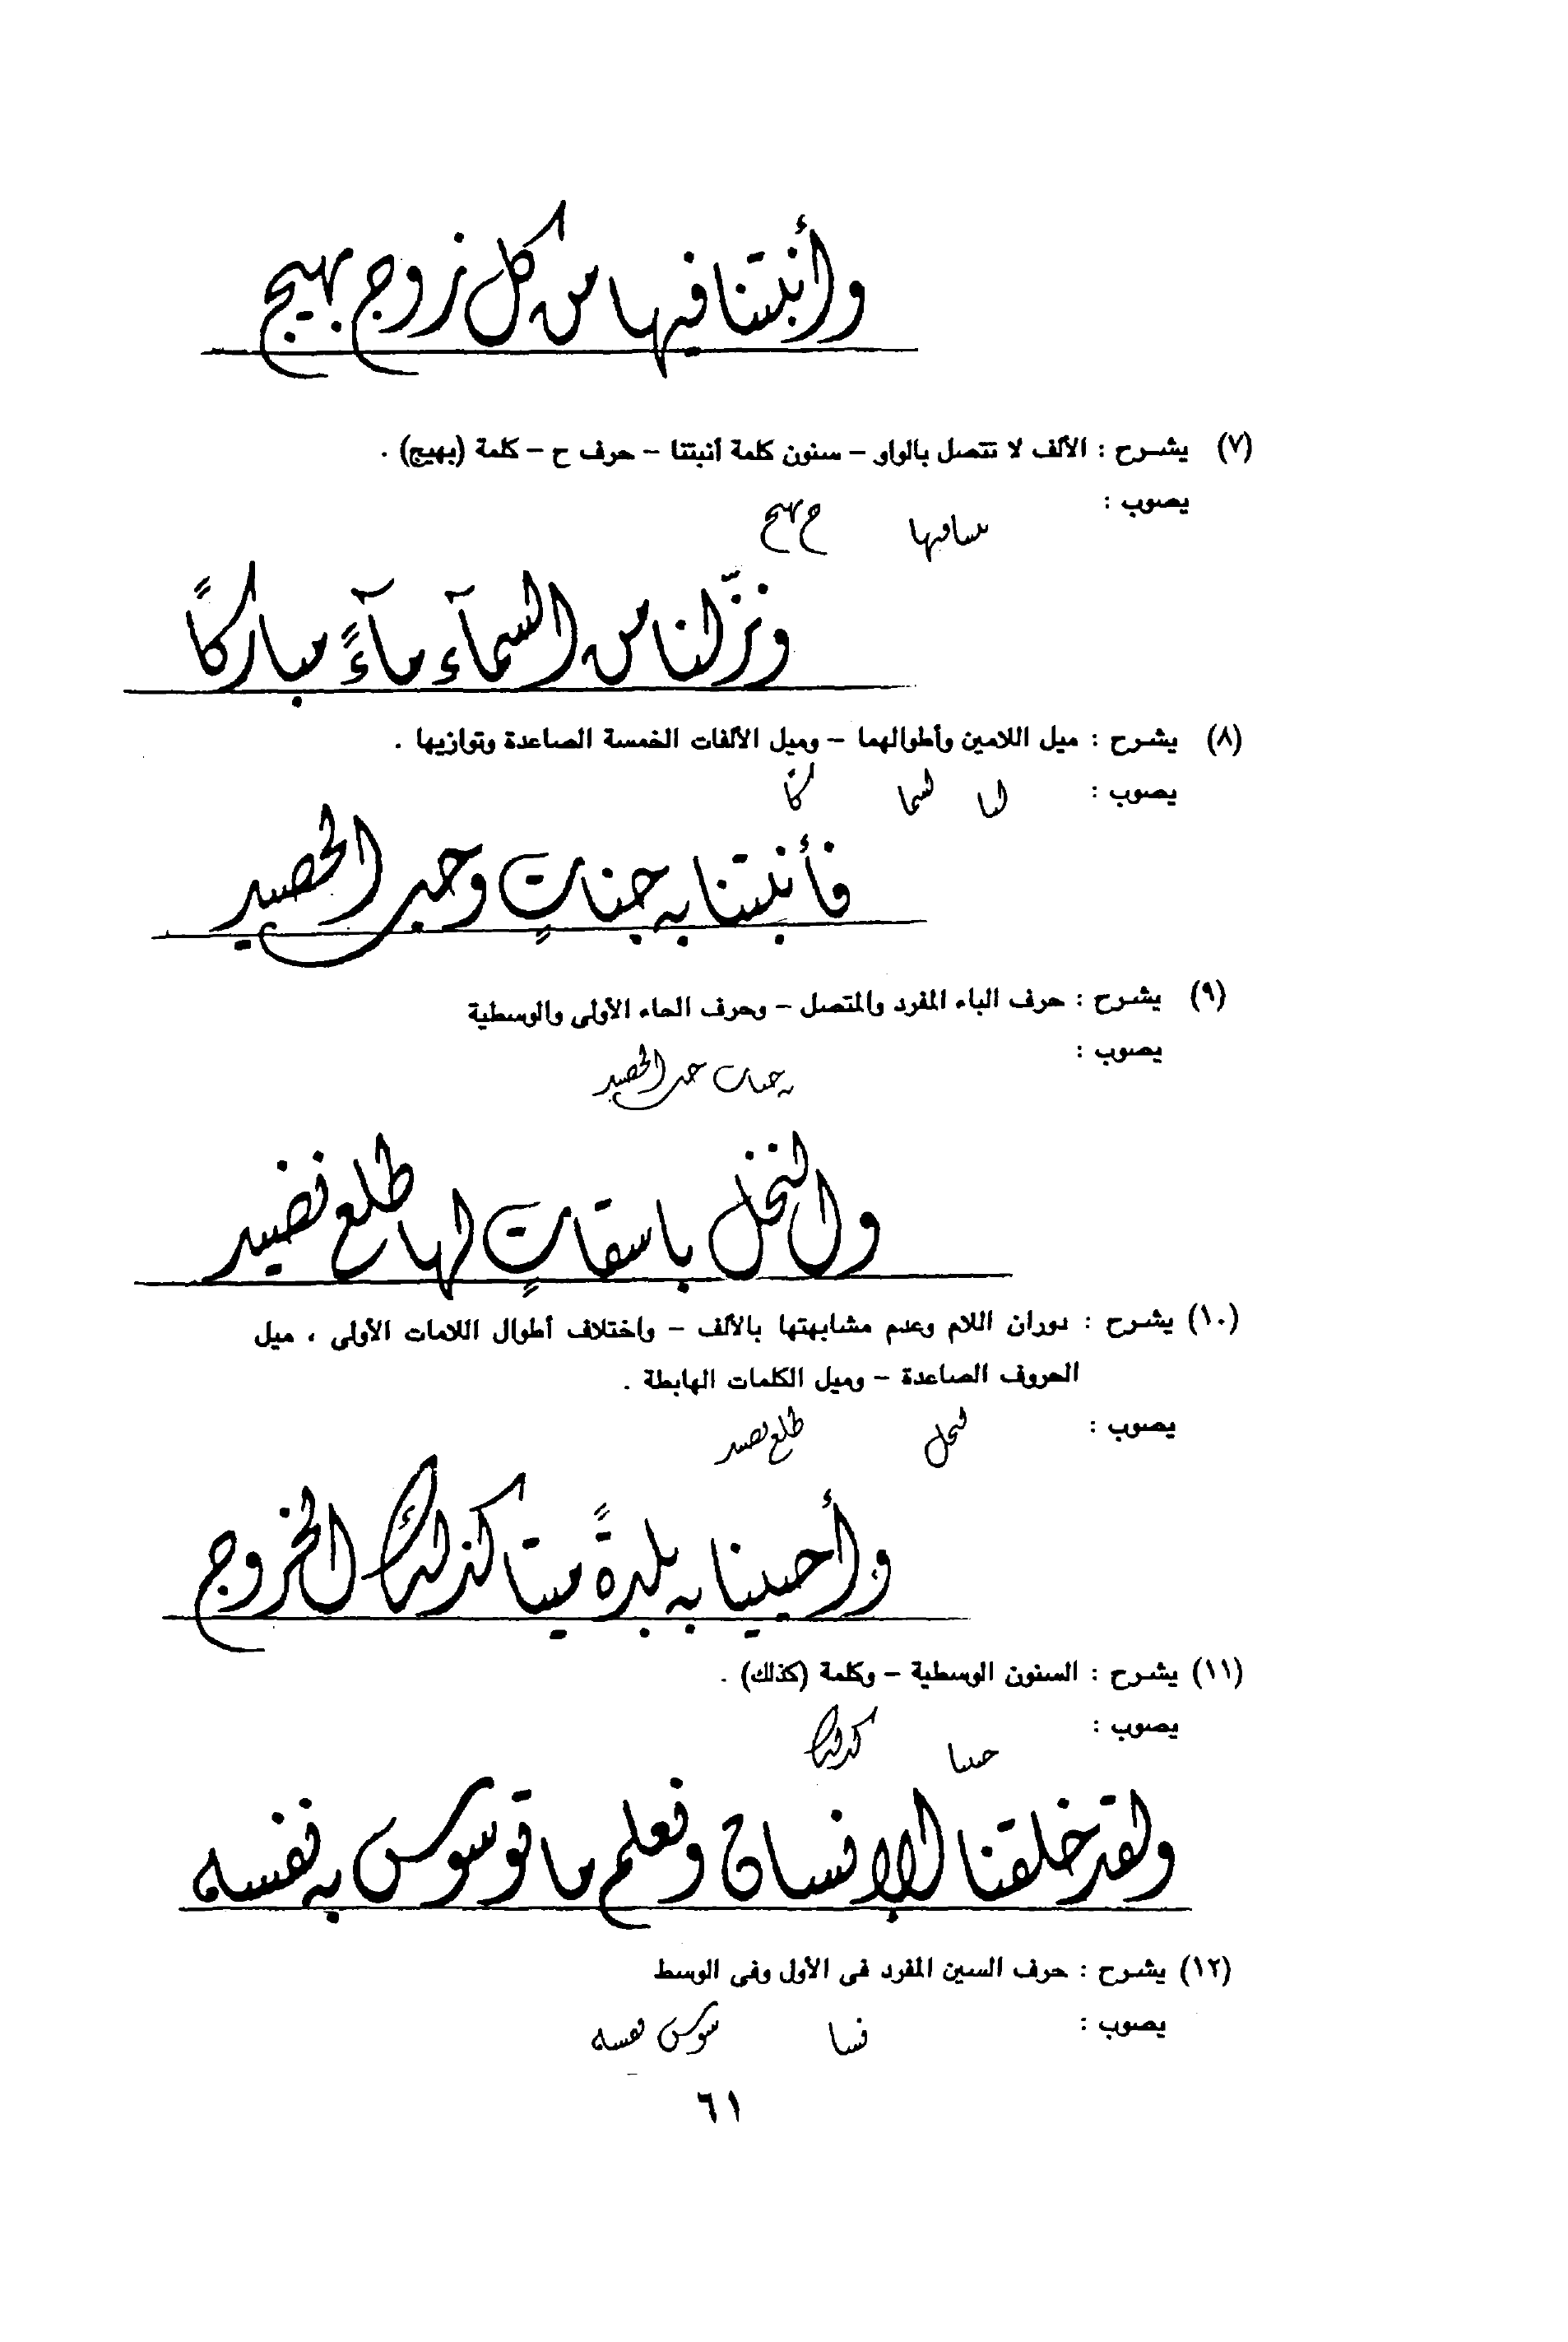 وأنبتنا فيها من كل زوج بهيج
(٧) يشرح : الألف لا تتصل بالواو – سنون كلمة أنبتنا – حرف ح – كلمة (بهيج) .
يصوب :
ونزّلنا من السمآء مآءً مباركًا
(٨) يشرح : ميل اللامين وأطوالهما – وميل الألفات الخمسة الصاعدة وتوازيها .
يصوب :
فأنبتنا به جناتٍ وحب الحصيد
(٩) يشرح : حرف الباء المفرد والمتصل – وحرف الحاء الأولى والوسطية
يصوب :
به جنات حب الحصيد
والنخل باسقاتٍ لها طلع نضيد
(١٠) يشرح : دوران اللام وعدم مشابهتها بالألف – واختلاف أطوال اللامات الأولى ، ميل
الحروف الصاعدة – وميل الكلمات الهابطة .
يصوب : لنخل طلع نضيد
وأحيينا به بلدةً ميتا كذلك الخروج
(١١) يشرح : السنون الوسطية – وكلمة (كذلك) .
يصوب : كذلك
ولقد خلقنا الإنسان ونعلم ما توسوس به نفسه
(١٢) يشرح : حرف السين المفرد فى الأول وفى الوسط
يصوب : نسا سوس نفسه
٦١